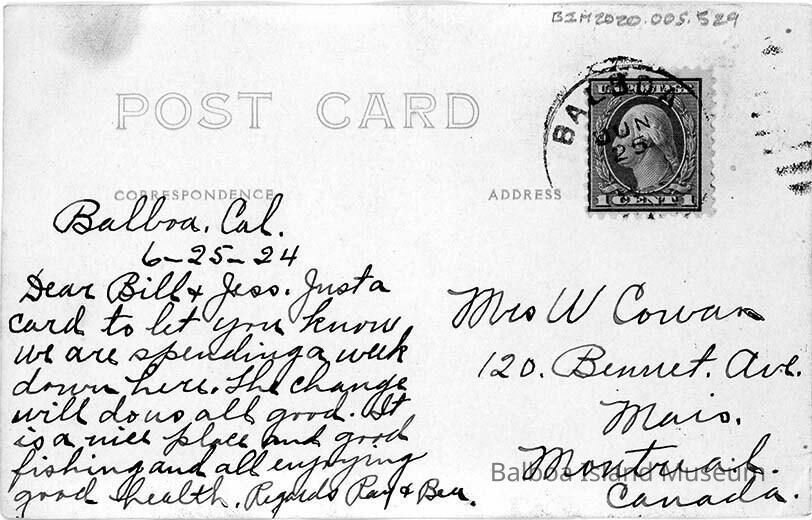 BIM2020.005.529
POST CARD
BALBOA
JUN
25
1 CENT 1
CORRESPONDENCE
ADDRESS
Balboa. Cal.
6-25-24
Dear Bill & Jess. Just a
card to let you know
we are spending a week
down here. The change
will do us all good. It
is a nice place and good
fishing and all enjoying
good health. Regards Ray & Bea.
Mrs W Cowan
120. Bennet. Ave.
Mais.
Montreal.
Canada.
Balboa Island Museum